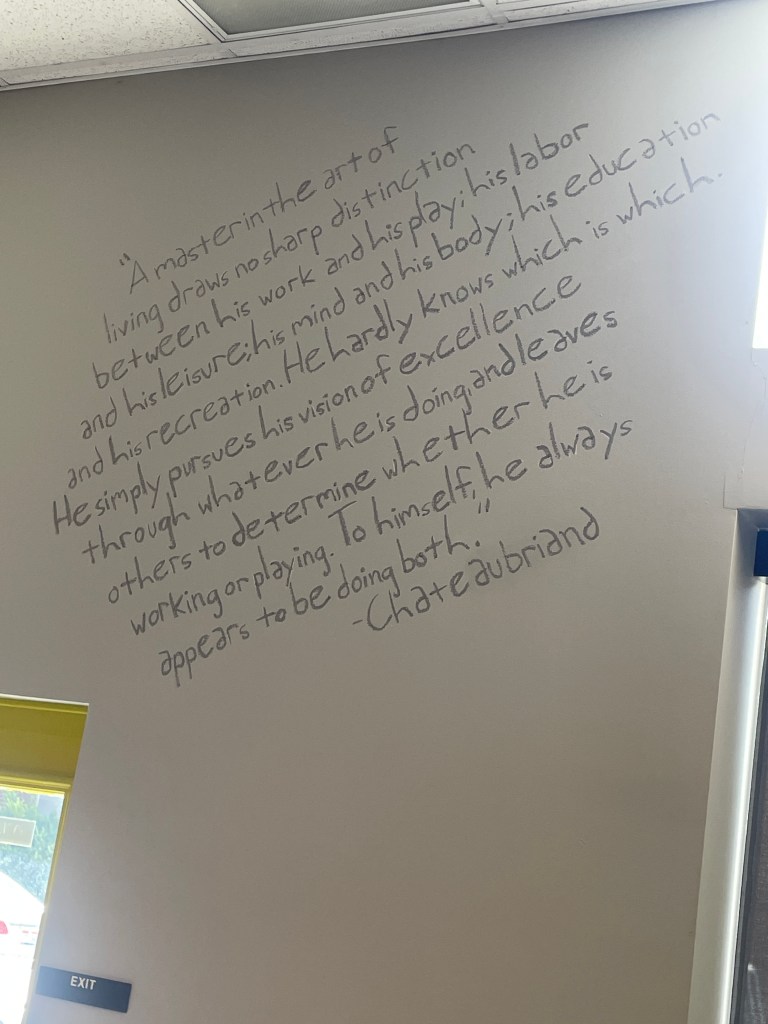 "A master in the art of
living draws no sharp distinction
between his work and his play; his labor
and his leisure; his mind and his body; his education
and his recreation. He hardly knows which is which.
He simply pursues his vision of excellence
through whatever he is doing, and leaves
others to determine whether he is
working or playing. To himself, he always
appears to be doing both."
-Chateaubriand
EXIT